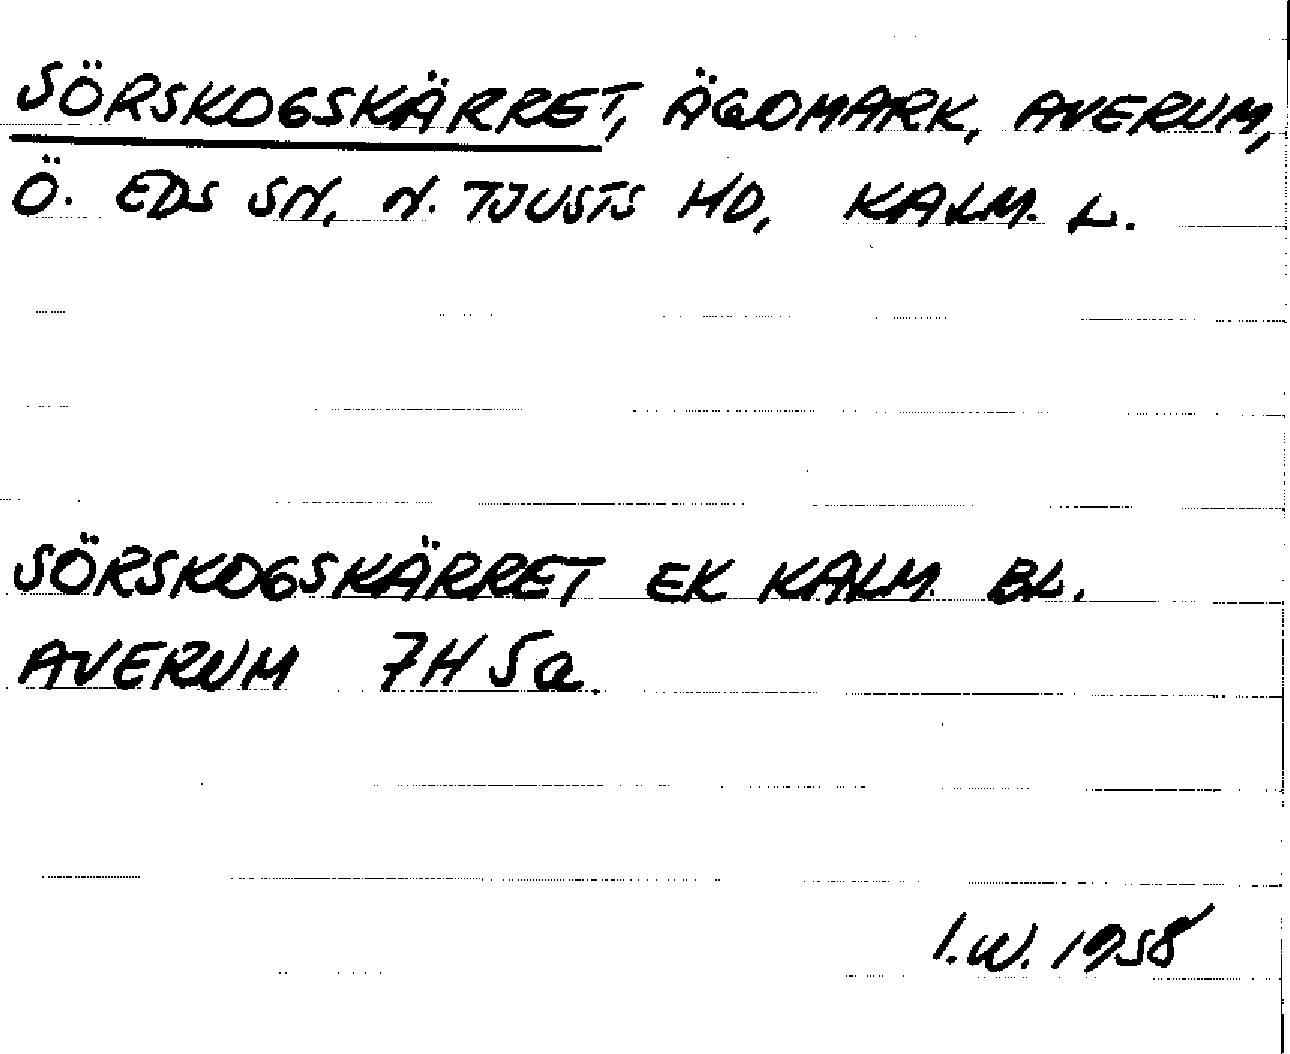 SÖRSKOGSKÄRRET, ÄGOMARK, AVERUM,
Ö. EDS SN, N. TJUSTS HD, KALM. L.
SÖRSKOGSKÄRRET EK KALM. BL.
AVERUM 7H5a.
I.W. 1958